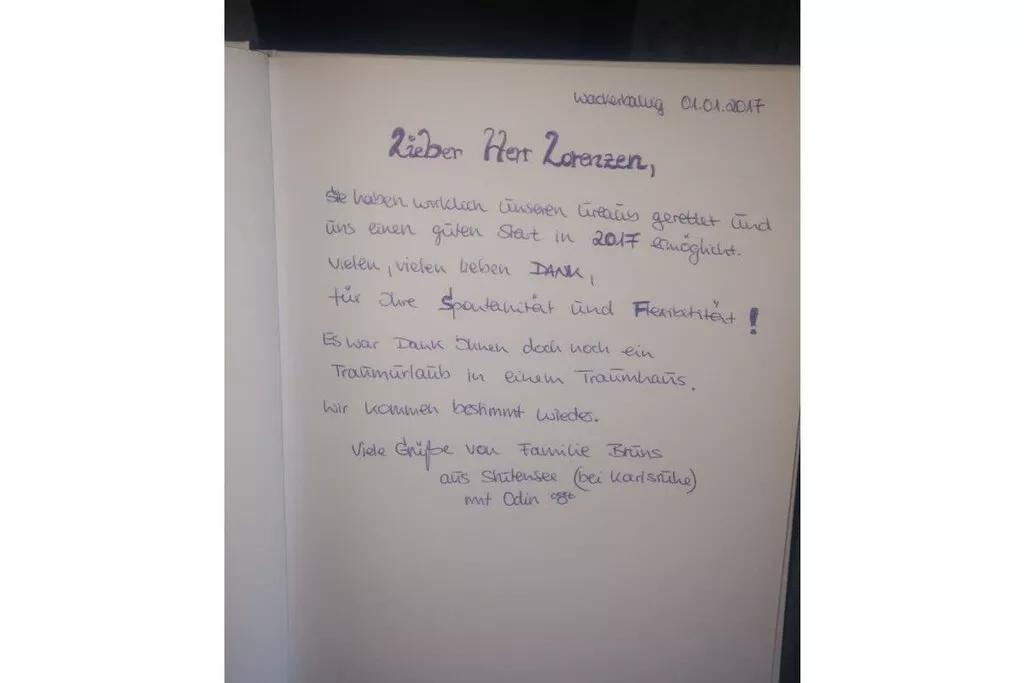 Wackerballig 01.01.2017
Lieber Herr Lorenzen,
Sie haben wirklich unseren Urlaub gerettet und
uns einen guten Start in 2017 ermöglicht.
Vielen, vielen lieben DANK,
für Ihre Spontanität und Flexibilität!
Es war Dank Ihnen doch noch ein
Traumurlaub in einem Traumhaus.
Wir kommen bestimmt wieder.
Viele Grüße von Familie Bruns
aus Stutensee (bei Karlsruhe)
mit Odin